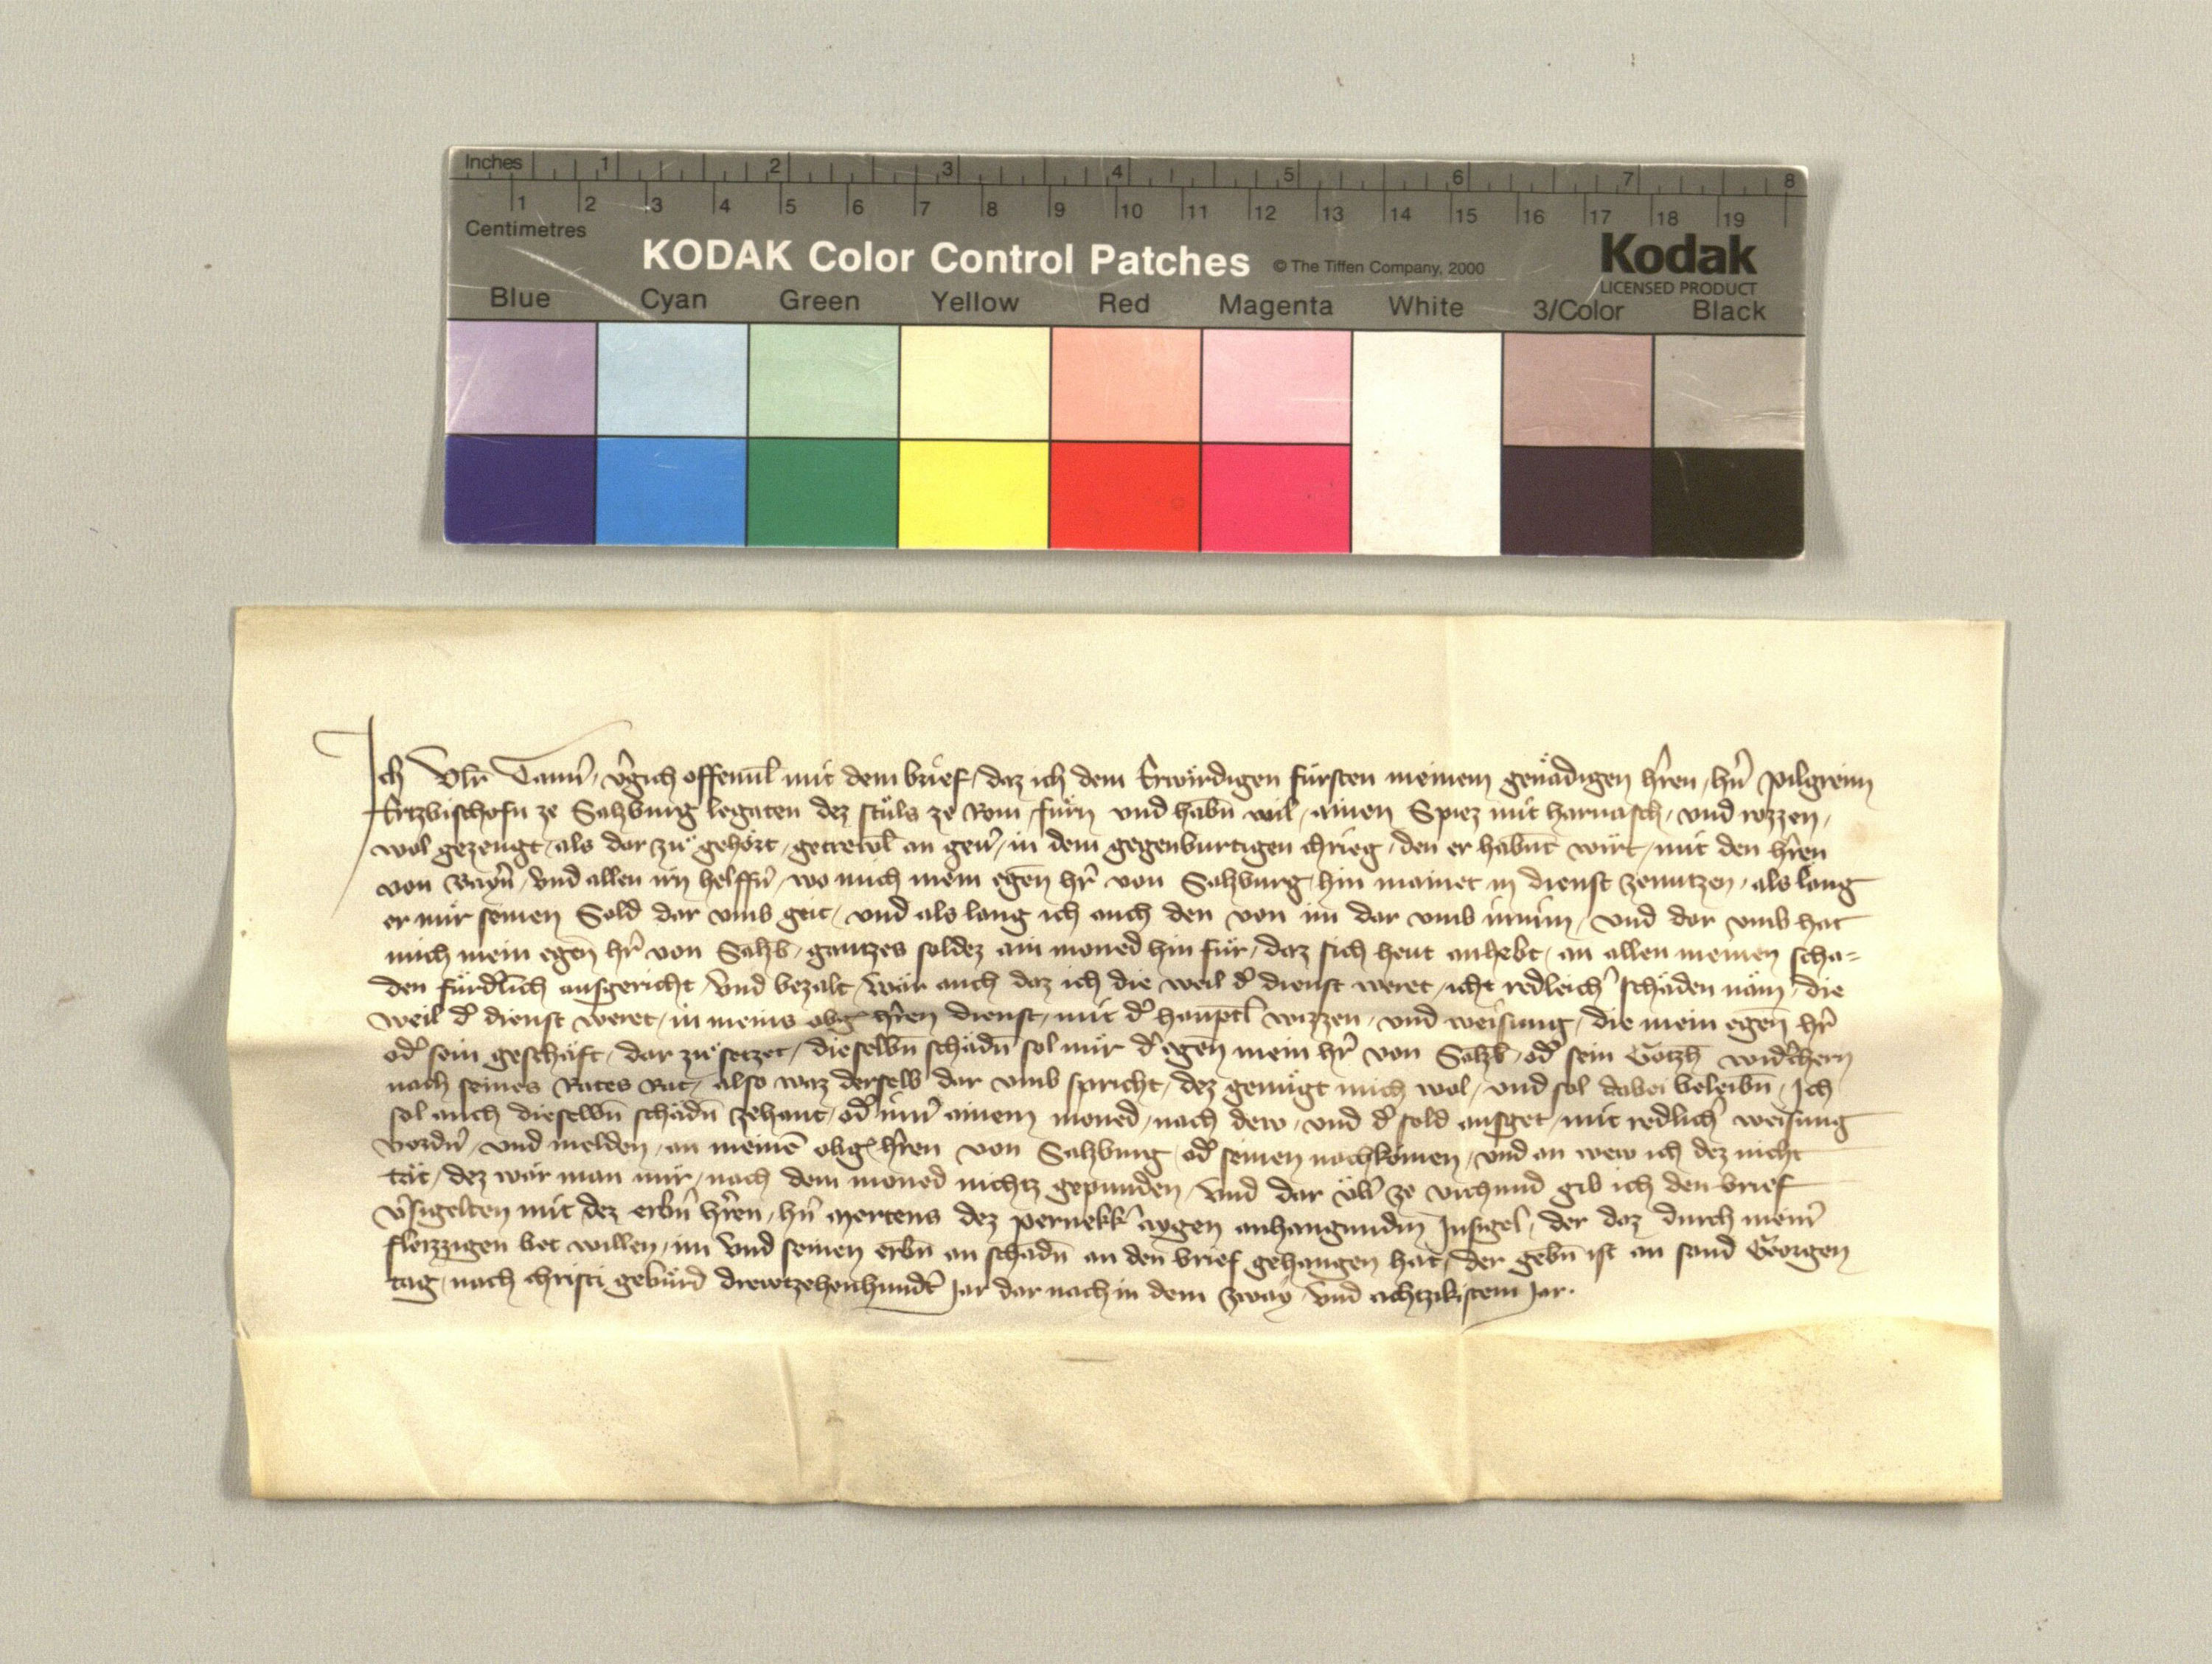 Inches 1 2 3 4 5 6 7 8
1 2 3 4 5 6 7 8 9 10 11 12 13 14 15 16 17 18 19
Centimetres
KODAK Color Control Patches © The Tiffen Company, 2000 Kodak
LICENSED PRODUCT
Blue Cyan Green Yellow Red Magenta White 3/Color Black
Ich Ulr̄ Tann̄ v̄gich offenn̄l mit dem brief, daz ich dem Erwirdigen fürsten meinem genädigen hr̄en, hn̄ Pilgreim
Ertzbischofn ze Salzburg legaten dez stůls ze Rom, fürn und habn̄ wil, ainen Spiez mit harnasch, und rozzen,
wol gezeugt, als dar zů gehört, getrewl̄ an geu̅, in dem gegenburtigen chrieg, den er habn̄t wirt, mit den hr̄en
von Bayrn̄, und allen irn helffn̄, wo mich mein egen̄ hr̄ von Salzburg hin mainet in dienst zenutzen, als lang
er mir seinen Sold dar umb geit, und als lang ich auch den von im dar umb innim, und dar umb hat
mich mein egen̄ hr̄ von Salzb̄, gantzes soldez ain moned hin für, daz sich heut anhebt, an allen meinen scha=
den fürdl̄ich ausgericht, und bezalt, wär auch daz ich die weil d̄ dienst weret, icht redleich̄ schäden näm, die
weil d̄ dienst weret, in meins obḡ hr̄en dienst, mit d̄ hauptl̄ wizzen, und weisung, die mein egen̄ hr̄
od̄ sein geschäft, dar zů setzet, dieselbn̄ schädn̄ sol mir d̄ egen̄ mein hr̄ von Salzb̄, od̄ sein Gotzh̄ widc̄hern
nach seines Rates Rat, also waz derselb dar umb spricht, dez genügt mich wol, und sol dabei beleibn̄, Ich
sol auch dieselbn̄ schädn̄ zehant, od̄ inn̄ ainem moned, nach dew, und d̄ sold ausget, mit redlich̄ weisung
vordn̄, und melden, an meinē obḡ hr̄en von Salzburg, od̄ seinen nachkomen, und an wew ich dez nicht
tät, dez wär man mir, nach dem moned nichtz gepunden, und dar üb̄ ze urchund gib ich den brief
v̄sigelten mit dez erbn̄ hr̄en, hn̄ Mertens dez Pernekk̄ aygen anhangundm Insigel, der daz durch mein̄
fleizzigen bet willen, im und seinen erbn̄ an schadn̄ an den brief gehangen hat, der gebn̄ ist an sand Georgen
tag, nach christi gebürd drewtzehenhundt̄ Jar dar nach in dem zway, und achtzikistem Jar.